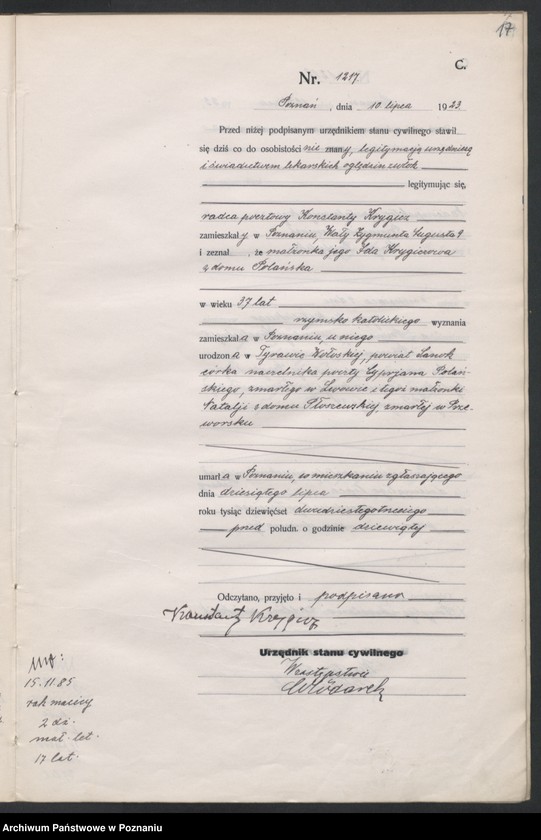 17
C.
Nr. 1217
Poznań, dnia 10 lipca 1923
Przed niżej podpisanym urzędnikiem stanu cywilnego stawił
się dziś co do osobistości nie znany, legitymacją urzędniczą
i świadectwem lekarskich oględzin zwłok
legitymując się,
radca pocztowy Konstanty Krygicz
zamieszkały w Poznaniu, Wały Zygmunta Augusta 9
i zeznał, że małżonka jego Ida Krygiczowa
z domu Polańska
w wieku 37 lat
rzymsko katolickiego wyznania
zamieszkała w Poznaniu, u niego
urodzona w Tyrawie Wołoskiej, powiat Sanok
córka naczelnika poczty Cyprjana Polań-
skiego, zmarłego w Lwowie i tegoż małżonki
Natalji z domu zmarłej w Prze-
worsku
umarła w Poznaniu, w mieszkaniu zgłaszającego
dnia dziesiątego lipca
roku tysiąc dziewięćset dwudziestego trzeciego
przed połudn. o godzinie dziewiątej
Odczytano, przyjęto i podpisano
Konstanty Krygicz
Urzędnik stanu cywilnego
W zastępstwie
Włódarek
15.11.85
rak macicy
2 dz.
mał. let.
17 lat.
Archiwum Państwowe w Poznaniu